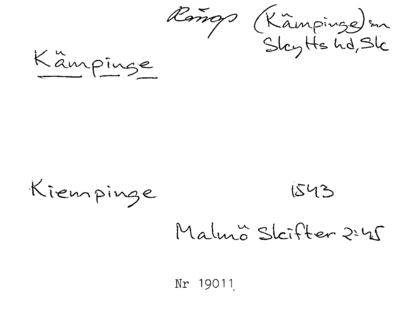 Rängs (Kämpinge) sn
Skytts hd, Sk
Kämpinge
Kiempinge 1543
Malmö Skifter 2:45
Nr 19011